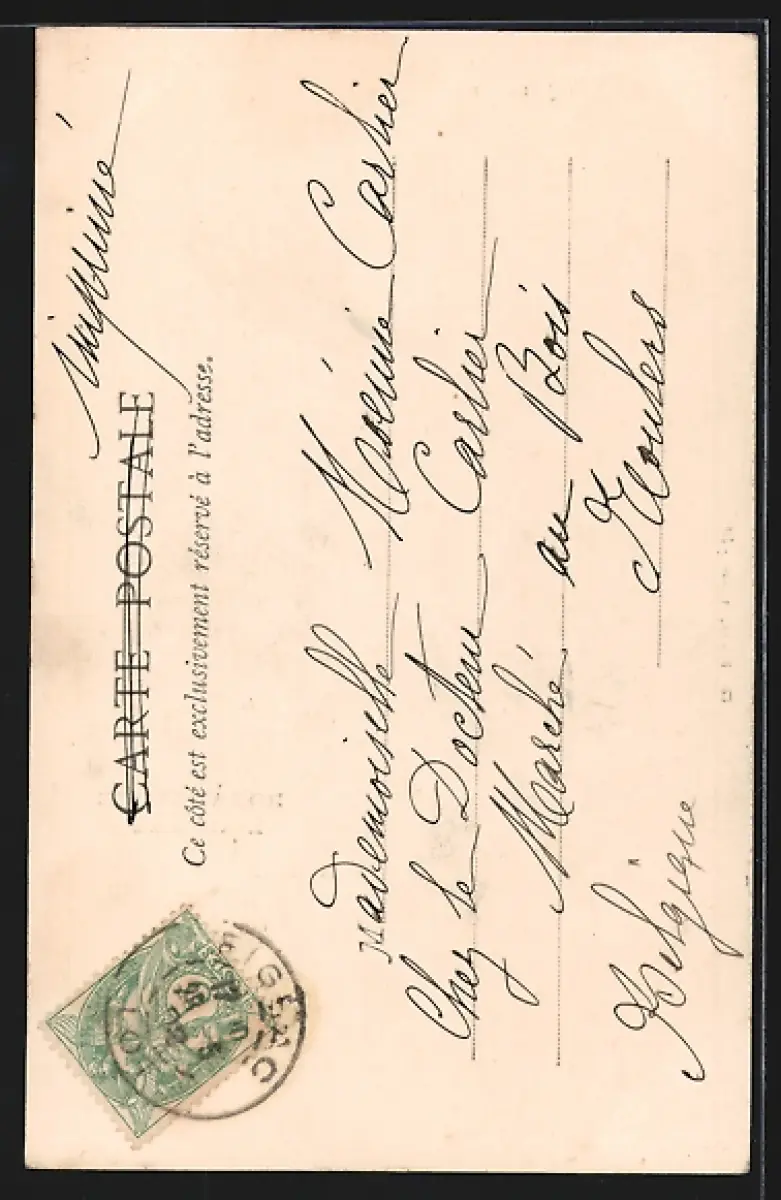 imprimé
CARTE POSTALE
Ce côté est exclusivement réservé à l'adresse.
Mademoiselle Carlier
Chez le Docteur Carlier
Marché au Bois
Belgique